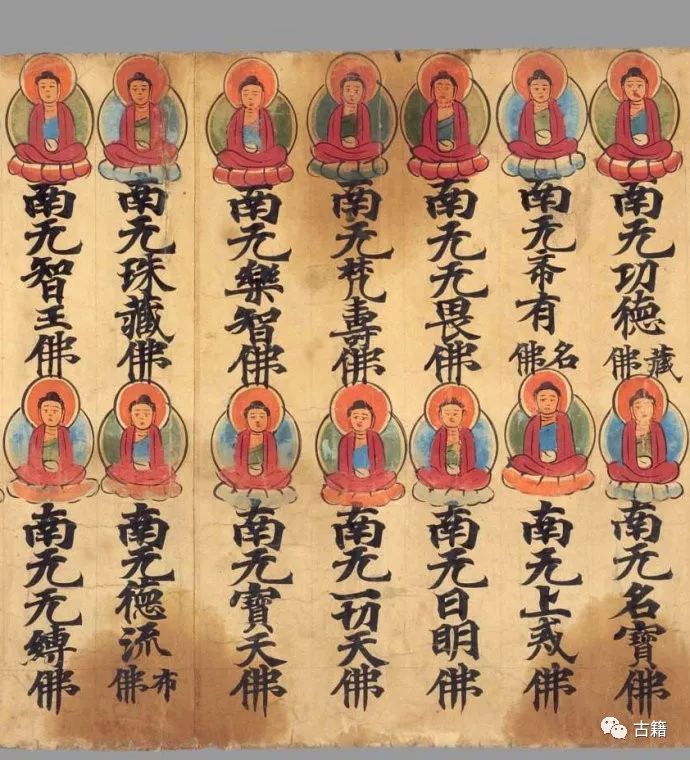 南无功德藏佛
南无名寶佛
南无希有名佛
南无上戒佛
南无无畏佛
南无日明佛
南无梵壽佛
南无一切天佛
南无樂智佛
南无寶天佛
南无珠藏佛
南无德流布佛
南无智王佛
南无无縛佛
古籍